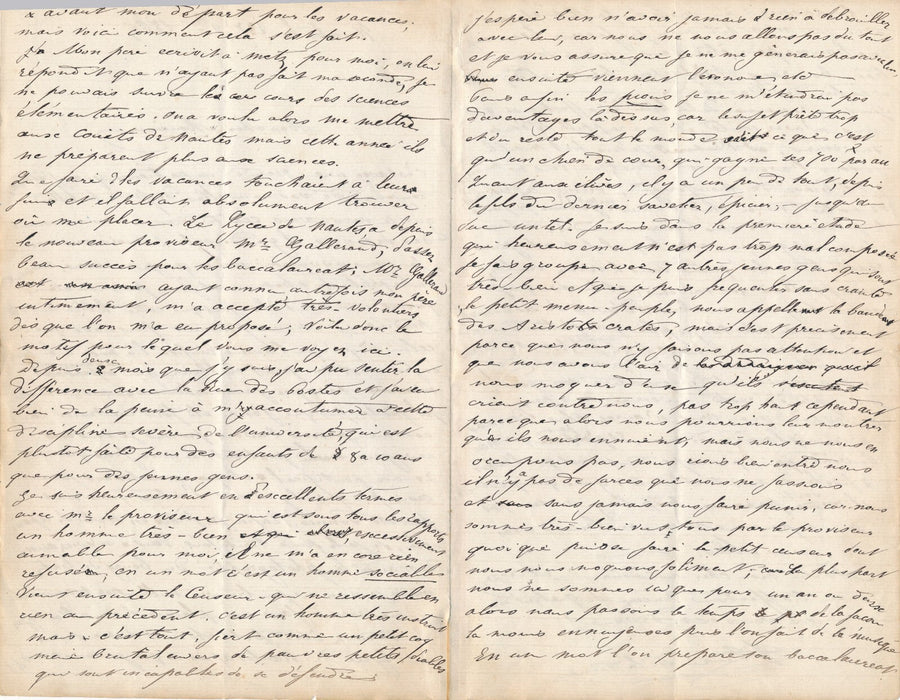 avant mon départ pour les vacances,
mais voici comment cela s'est fait.
Mon père écrivit à metz pour moi, on lui
répondit que n'ayant pas fait ma seconde, je
ne pouvais suivre les cours des sciences
élémentaires. on a voulu alors me mettre
aux Couëts de Nantes mais cette année ils
ne préparent plus aux sciences.
Que faire? les vacances touchaient à leur
fin et il fallait absolument trouver
où me placer. Le Lycée de Nantes a depuis
le nouveau proviseur Mr. Gallerand, d'assez
beau succès pour les baccalauréat; Mr Gallerand
ayant connu autrefois mon père
intimement, m'a accepté très-volontiers
dès que l'on m'a eu proposé; voilà donc le
motif pour lequel vous me voyez ici.
Depuis deux mois que j'y suis j'ai pu sentir la
différence avec la Rue des Postes et j'ai eu
bien de la peine à m'accoutumer à cette
discipline sévère de l'université, qui est
plutôt faite pour des enfants de 8 à 10 ans
que pour des jeunes gens.
Je suis heureusement en d'excellents termes
avec mr le proviseur qui est sous tous les rapports
un homme très-bien et excessivement
aimable pour moi, il ne m'a encore rien
refusé, en un mot c'est un homme sociable
Vient ensuite le Censeur qui ne ressemble en
rien au précédent. c'est un homme très instruit
mais c'est tout, fier comme un petit coq
mais brutal envers de pauvres petits diables
qui sont incapables de se défendre
j'espère bien n'avoir jamais rien à débrouiller
avec lui, car nous ne nous allons pas du tout
et je vous assure que je ne me gênerais pas avec lui
ensuite viennent l'économe etc
quant aux pions je ne m'étendrai pas
davantage là dessus car le sujet prête trop
et du reste tout le monde sait ce que c'est
qu'un chien de cour, qui gagne ses 700 f par an
Quant aux élèves, il y a un peu de tout, depuis
le fils du dernier savetier, épicier, jusqu'au
duc untel. Je suis dans la première étude
qui heureusement n'est pas trop mal composée
Je fais groupe avec 7 autres jeunes gens qui sont
très-bien et que je puis fréquenter sans crainte
le petit menu-peuple, nous appellent le banc
des Aristocrates, mais c'est précisément
parce que nous n'y faisons pas attention et
que nous avons l'air de
nous moquer d'eux qu'ils
crient contre nous, pas trop haut cependant
parce que alors nous pourrions leur montrer
qu'ils nous ennuient, mais nous ne nous en
occupons pas, nous rions bien entre nous
il n'y a pas de farces que nous ne fassions
et sans jamais nous faire punir, car nous
sommes très-bien vus tous par le proviseur
quoique puisse faire le petit censeur dont
nous nous moquons joliment; la plus part
nous ne sommes ici que pour un an ou deux
alors nous passons le temps de la façon
la moins ennuyeuse puis l'on fait de la musique
En un mot l'on prépare son baccalauréat